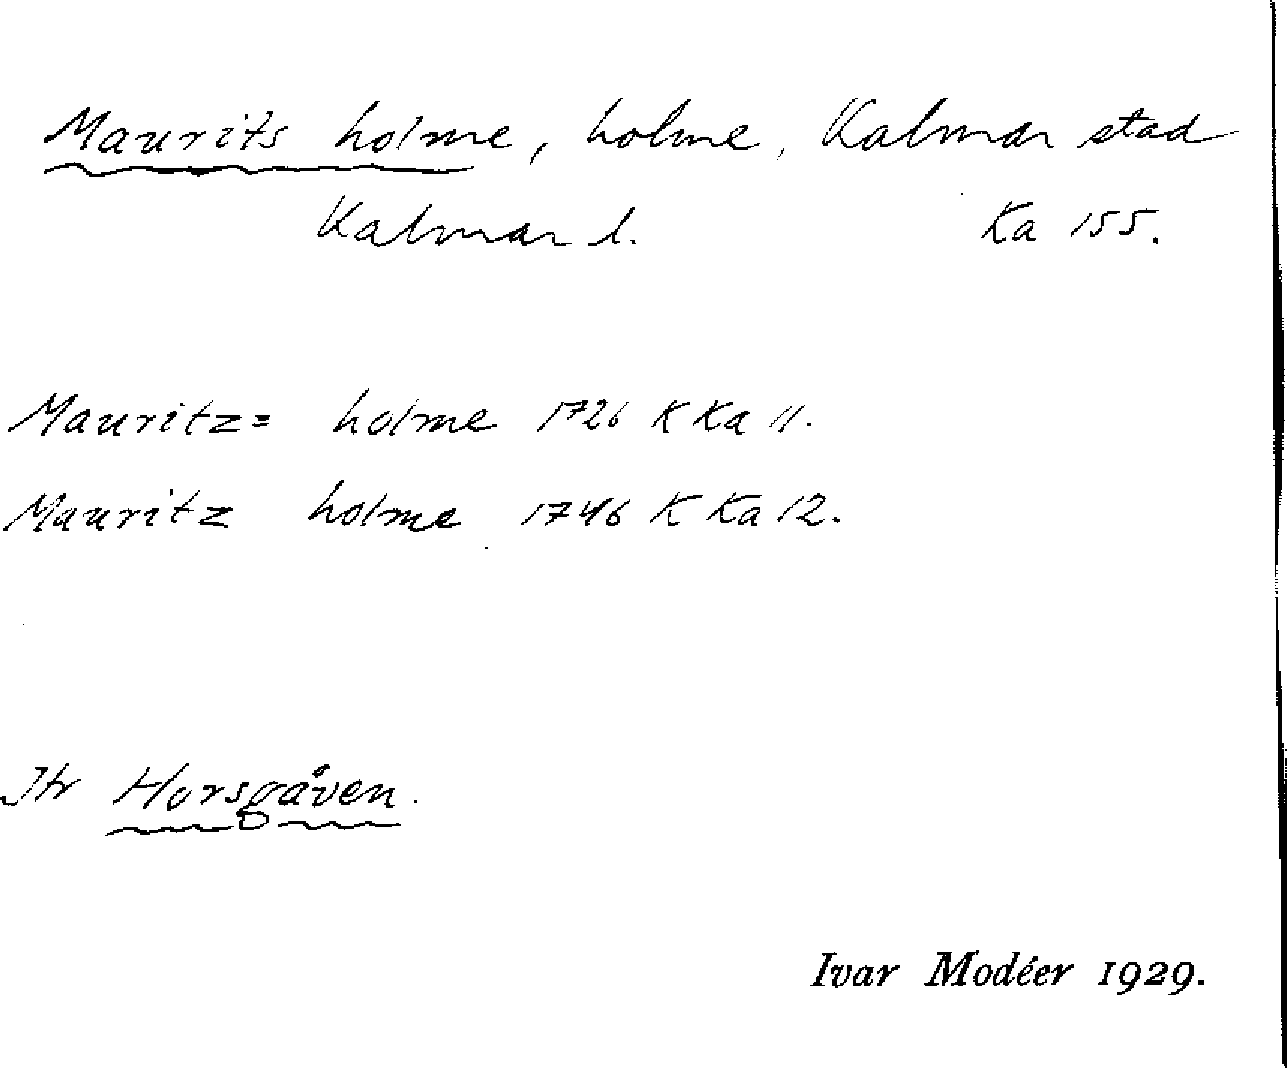 Maurits holme, holme, Kalmar stad
Kalmar l. Ka 155.
Mauritz= holme 1726 K Ka 11.
Mauritz holme 1746 K Ka 12.
Jtr Horsgåven.
Ivar Modéer 1929.